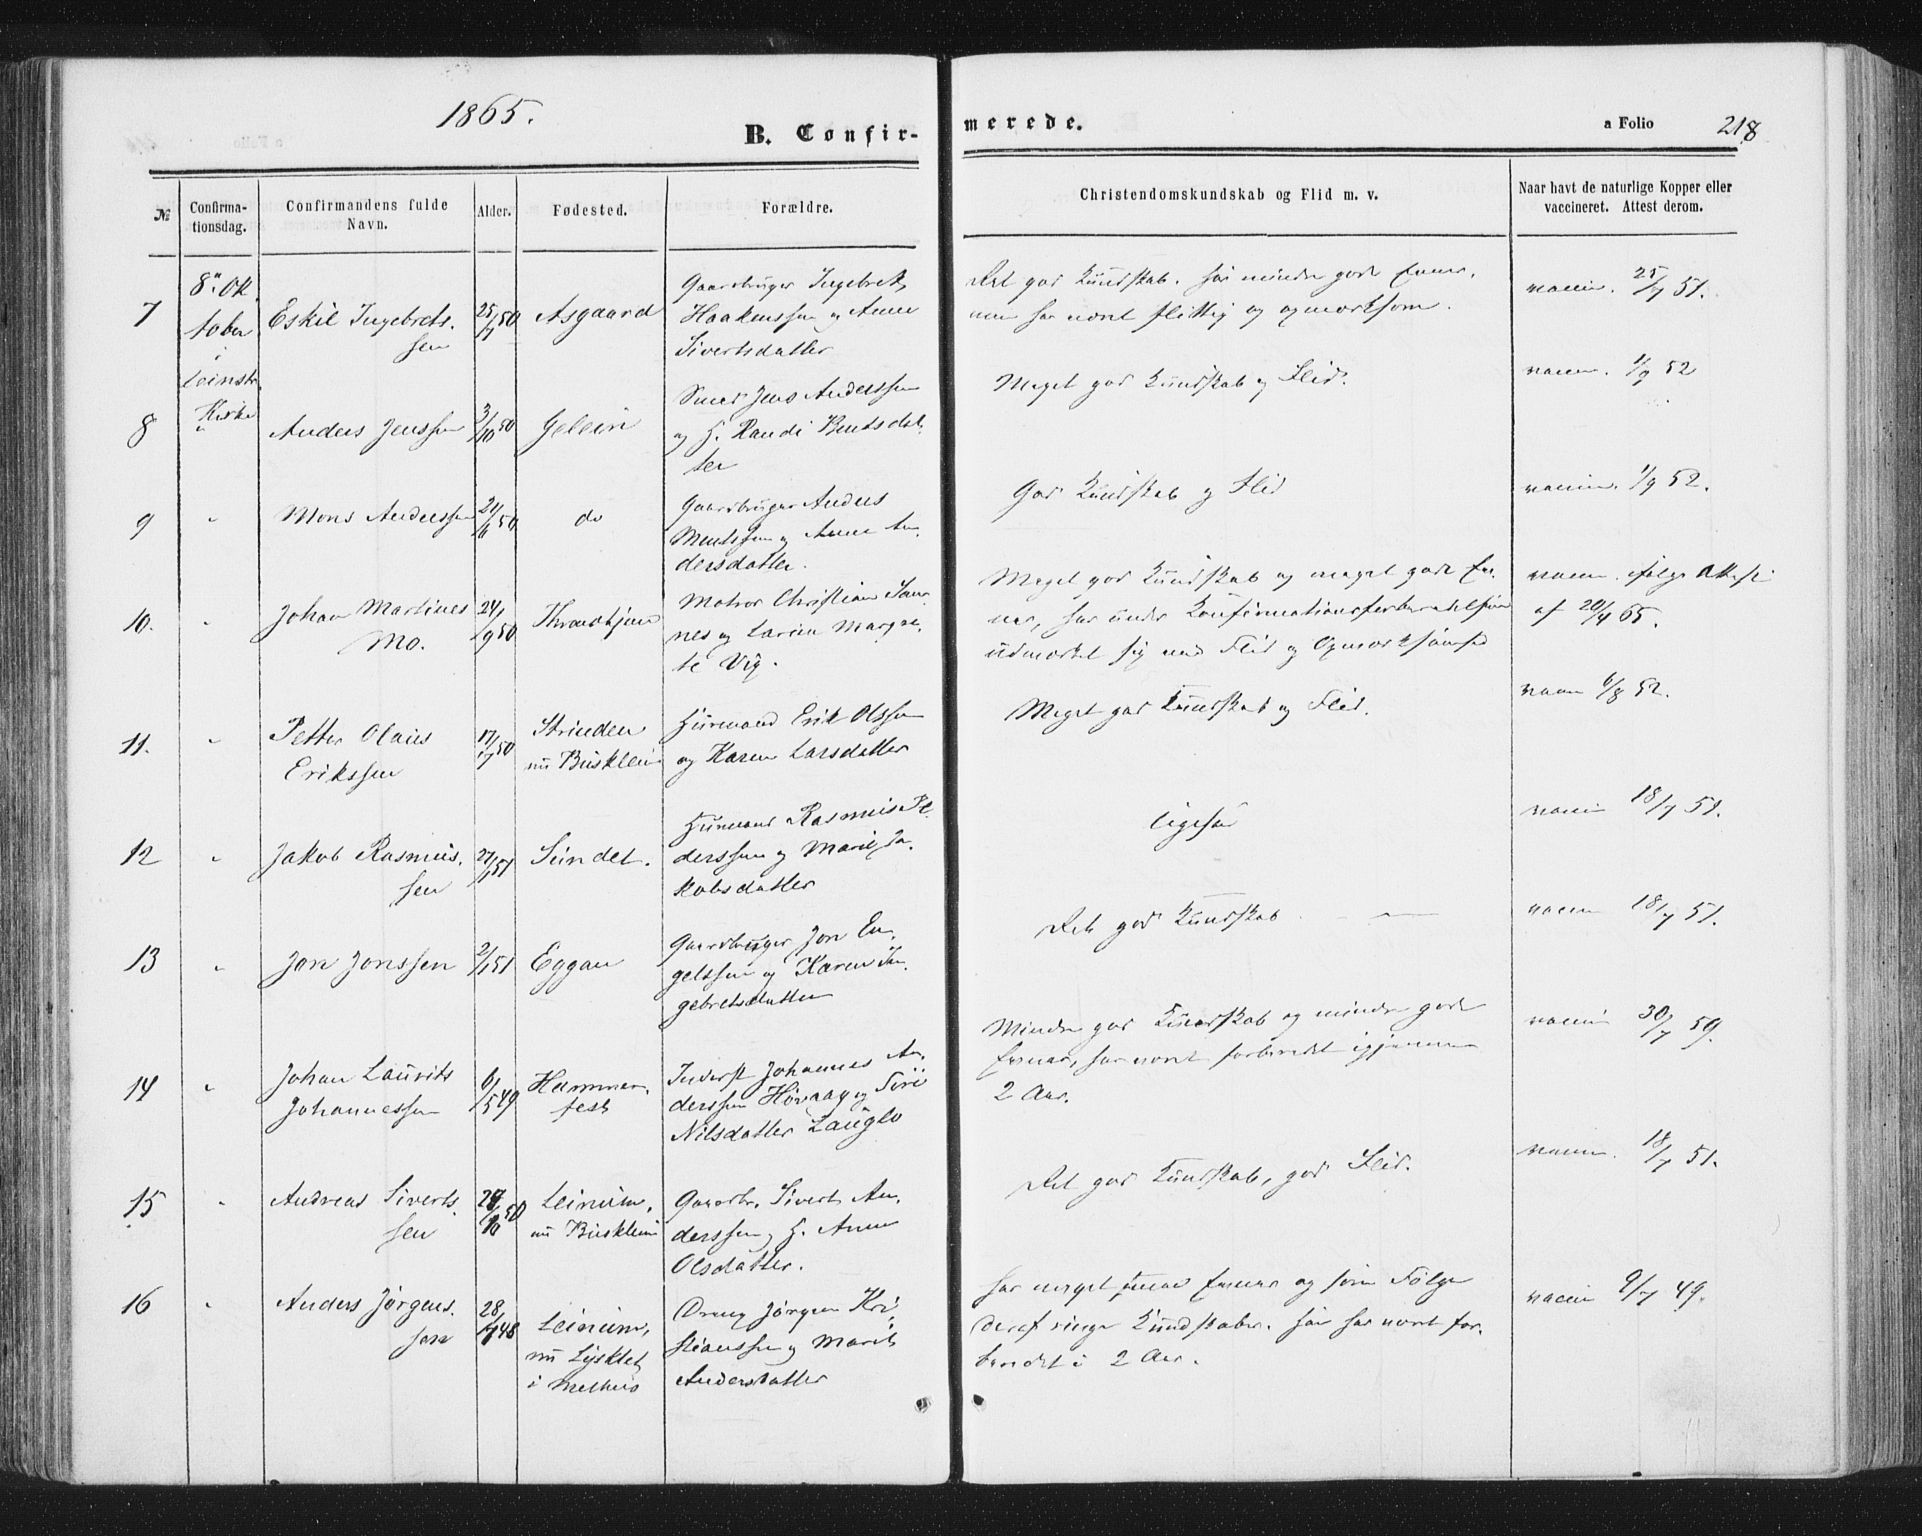 1865.
B. Confir-
merede.
a Folio 218
№
Confirma-
tionsdag.
Confirmandens fulde
Navn.
Alder.
Fødested.
Forældre.
Christendomskundskab og Flid m. v.
Naar havt de naturlige Kopper eller
vaccineret. Attest derom.
7
8de Ok
tober
i
Leinstr.
Kirke
Eskil Ingebrets-
sen
25/7 50
Asgaard
Gaardbruger Ingebret
Haakenssen og Anne
Sivertsdatter
Ret god Kundskab. har mindre gode Evner,
men har vært flittig og opmærksom.
vaccin. 25/7 51.
8
Anders Jenssen
3/10 50
Gelein
Smed Jens Anderssen
og H. Randi Bentsdat-
ter
Meget god Kundskab og Flid.
vaccin. 1/9 52
9
Mons Anderssen
do
Gaardbruger Anders
Mentssen og Anne An-
dersdatter.
God Kundskab og Flid
vaccin. 1/9 52.
10.
Johan Martines
Mo.
24/9 50
Throndhjem
Matros Christian
og Larine Margre-
te Vig.
Meget god Kundskab og meget gode Ev-
ner, har under Konfirmationsforberedelsen
udmærket sig ved Flid og Opmærksomhed
vaccin. ifølge Attest
af 20/4 65.
11.
Petter Olaus
Erikssen
17/7 50
Strinden
nu Busklein
Huusmand Erik Olssen
og Karen Larsdatter
Meget god Kundskab og Flid.
vaccin 6/8 52.
12
Jakob Rasmus-
sen
27/1 51
Sundet.
Huusmand Rasmus Pe-
derssen og Marit Ja-
kobsdatter
ligesaa
vaccin 18/7 51.
13
Jon Jonssen
2/1 51
Eggan
Gaardbruger Jon En-
gelssen og Karen In-
gebretsdatter
Ret god Kundskab — —
vaccin 18/7 51.
14
Johan Laurits
Johannessen
6/5 49
Hammer-
fest
Inderst Johannes An-
derssen Høvaag og Siri
Nilsdatter Lauglo
Mindre god Kundskab og mindre gode
Evner, har vært forberedet igjennem
2 Aar.
vaccin 30/7 59.
15
Andreas Siverts-
sen
Leinum,
nu Busklein
Gaardbr. Sivert An-
derssen og H. Anne
Olsdatter.
Ret god Kundskab, god Flid.
vaccin. 18/7 51.
16
Anders Jørgens-
sen
28/7 48
Leinum,
nu Lysklet
i Melhus
Dreng Jørgen Kri-
stianssen og Marit
Andersdatter
har meget Evner og som Følge
deraf ringe Kundskaber. har vært for-
beredet i 2 Aar.
vaccin 9/7 49.